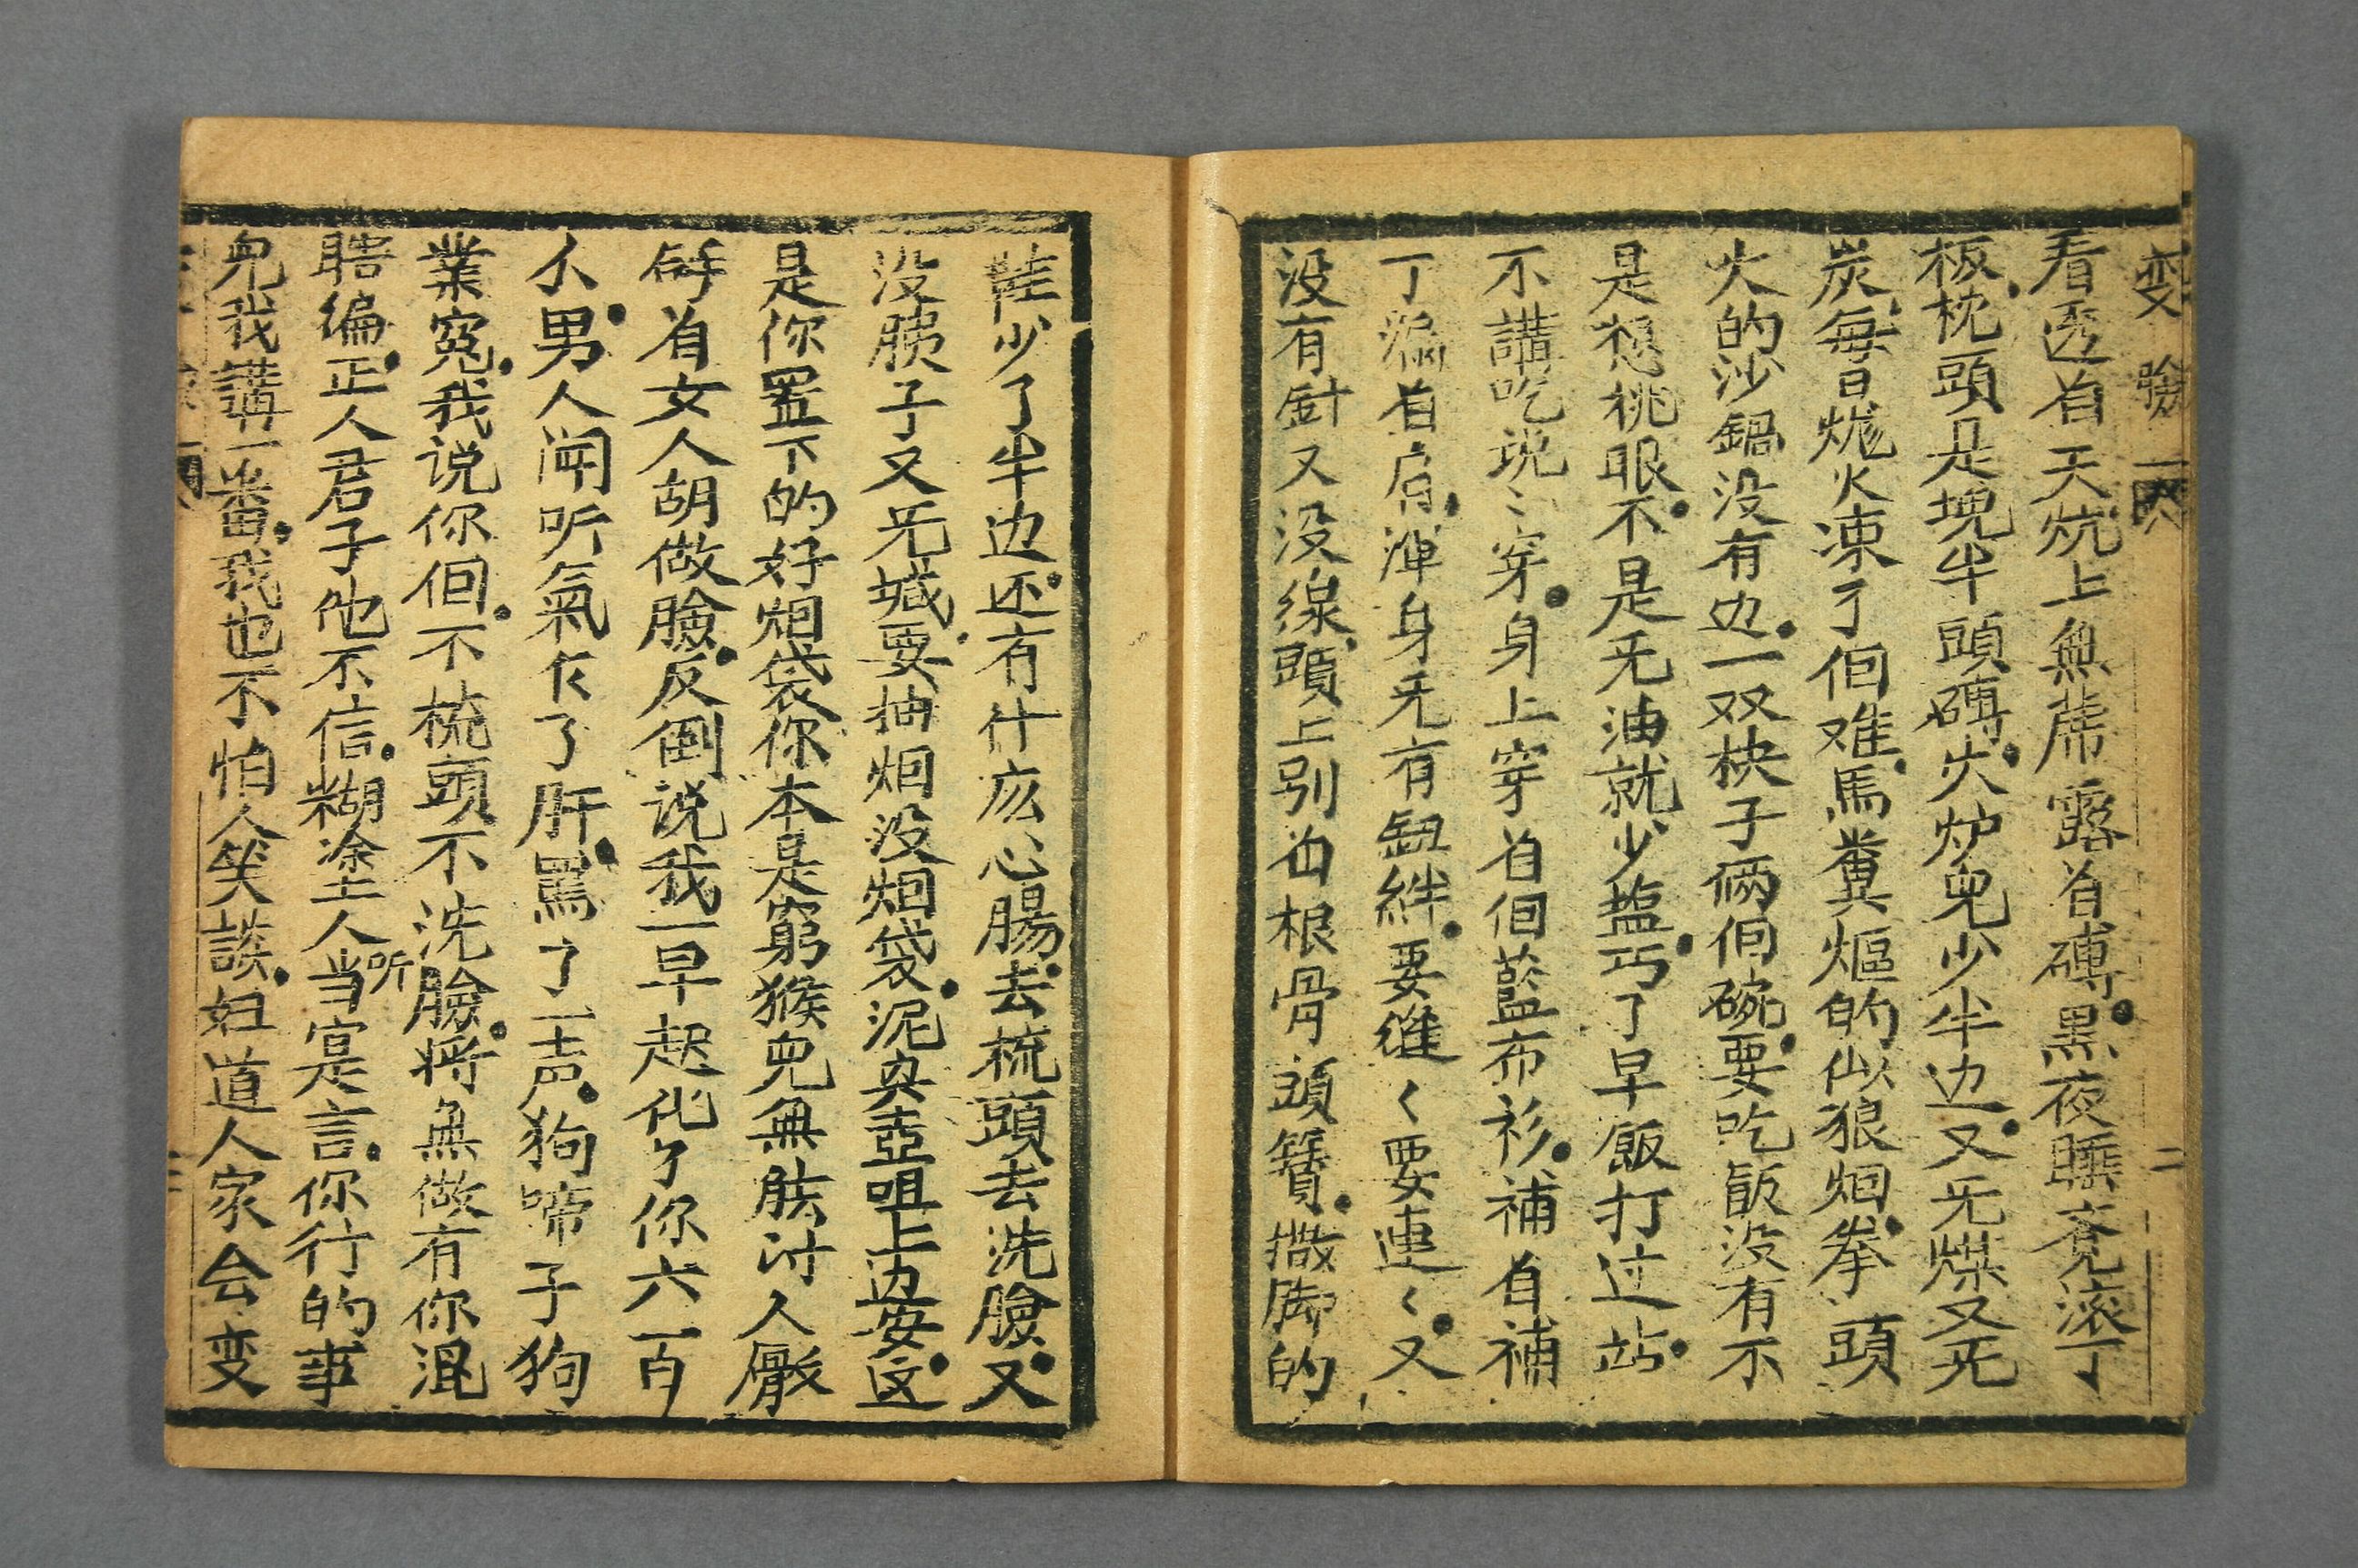 变 驗 一 二
看透㸔天炕上無蓆露㸔磚黑夜睡竟滚丁
板枕頭是塊半頭磚火炉兒少半边又旡煤又旡
炭每日火凍了佪难馬糞熰的似狼烟拳頭
火的沙鍋没有边一双柍子俩佪碗要吃飯没有不
是想桃眼不是旡油就少盐丐了早飯打过站
不講吃说〻穿身上穿㸔佪藍布衫補㸔補
丁漏㸔肩渾身旡有鈕絆要維〻要連〻又
没有針又没線頭上别㸔根骨頭簪撒脚的
鞋少了半边还有什庅心腸去梳頭去洗臉又
没胰子又旡堿要抽烟没烟袋泥壺咀上边安这
是你置下的好烟袋你本是窮猴兒無胀讨人厭
㸔女人胡做臉反倒说我一早起化了你六百
男人闻听氣乍了肝罵了一声狗啼子狗
業冤我说你佪不梳頭不洗臉将無做有你混
瞎编正人君子他不信糊塗人听当寔是言你行的事
兒我講一番我也不怕人笑談妇道人家会变